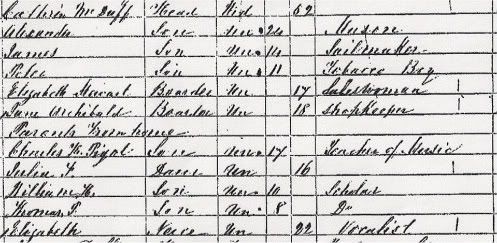 Cathrin McDuff Head Wid 52
Alexander Son Un 24 Mason
James Son Un 14 Sailmaker
Peter Son Un 11 Tobacco Boy
Elizabeth Boarder Un 17 Saleswoman
Jane Archibald Boarder Un 18 Shopkeeper
Parents from home
Charles H. Son Un 17 Teacher of Music
Daur Un 16
William H. Son Un 10 Scholar
Thomas F. Son Un 8 Do
Elizabeth Niece Un 22 Vocalist